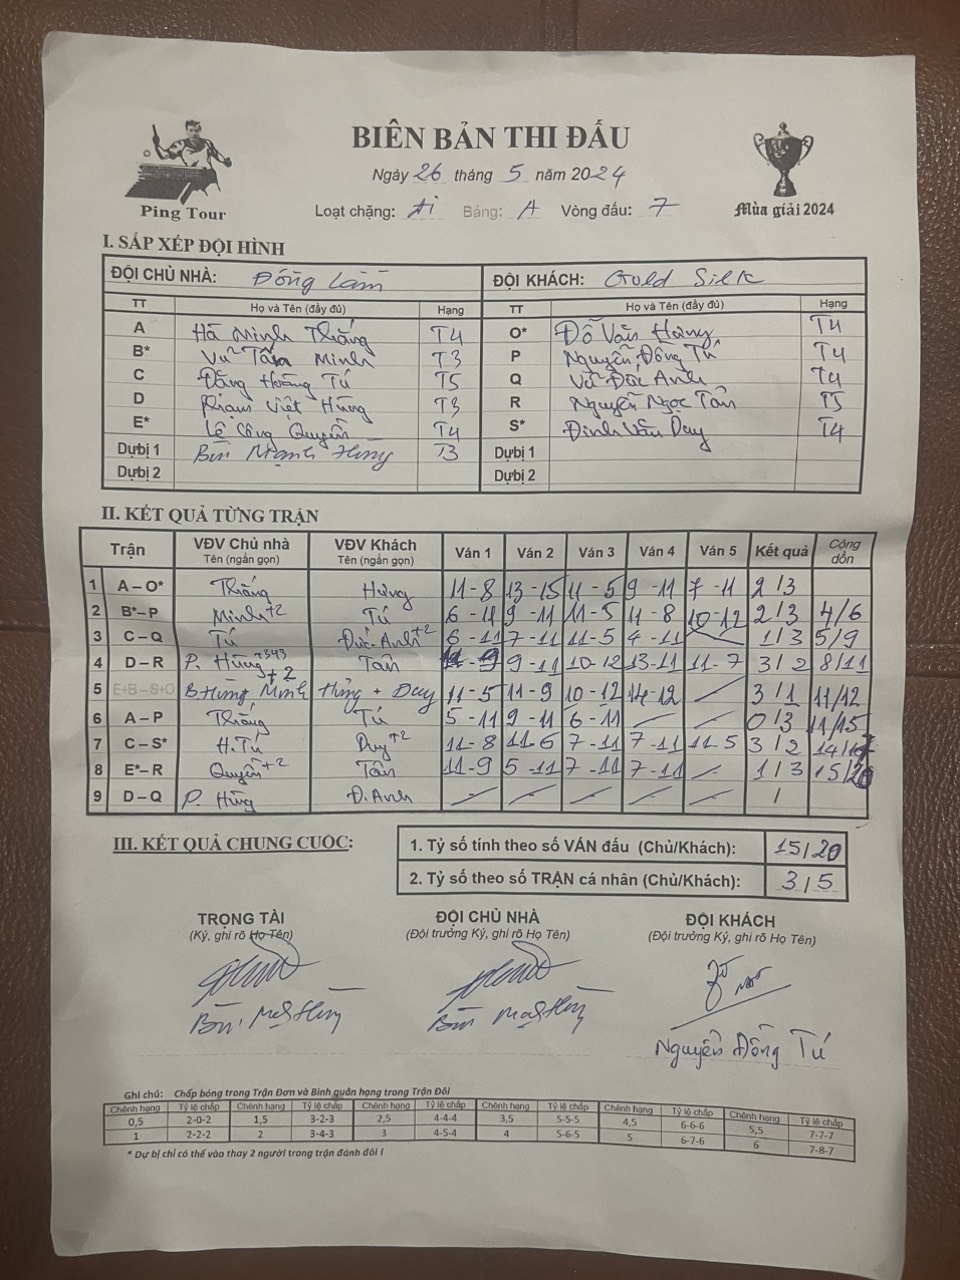 BIÊN BẢN THI ĐẤU
Ngày 26 tháng 5 năm 2024
Ping Tour
Loạt chặng: Bảng: A Vòng đấu: 7
Mùa giải 2024
I. SẮP XẾP ĐỘI HÌNH
ĐỘI CHỦ NHÀ: Đồng Lầm ĐỘI KHÁCH: Gold Silk
TT Họ và Tên (đầy đủ) Hạng TT Họ và Tên (đầy đủ) Hạng
A Hà Minh Thắng T4 O* Đỗ Văn Hưng T4
B* Vũ Tấn Minh T3 P Nguyễn Đồng Tú T4
C Đặng Hoàng Tú T5 Q Vũ Đức Anh T4
D Phạm Việt Hùng T3 R Nguyễn Ngọc Tân T5
E* Lê Công Quyền T4 S* Đinh Văn Duy T4
Dự bị 1 Bùi Mạnh Hùng T3 Dự bị 1
Dự bị 2 Dự bị 2
II. KẾT QUẢ TỪNG TRẬN
Trận VĐV Chủ nhà Tên (ngắn gọn) VĐV Khách Tên (ngắn gọn) Ván 1 Ván 2 Ván 3 Ván 4 Ván 5 Kết quả Cộng dồn
1 A – O* Thắng Hưng 11 - 8 13 - 15 11 - 5 9 - 11 7 - 11 2 / 3
2 B* – P Minh+2 Tú 6 - 11 9 - 11 11 - 5 11 - 8 10 - 12 2 / 3 4/6
3 C – Q Tú Đức Anh+2 6 - 11 7 - 11 11 - 5 4 - 11 1 / 3 5/9
4 D – R P. Hùng +343 +2 Tân 9 - 11 10 - 12 13 - 11 11 - 7 3 / 2 8/11
5 E+B – S+O B.Hùng Minh Hưng + Duy 11 - 5 11 - 9 10 - 12 14 - 12 / 3 / 1 11/12
6 A – P Thắng Tú 5 - 11 9 - 11 6 - 11 / / 0 / 3 11/15
7 C – S* H.Tú Duy+2 11 - 8 11 - 6 7 - 11 7 - 11 11 - 5 3 / 2 14/17
8 E* – R Quyền+2 Tân 11 - 9 5 - 11 7 - 11 7 - 11 / 1 / 3 15/20
9 D – Q P. Hùng Đ. Anh / / / / / /
III. KẾT QUẢ CHUNG CUỘC:
1. Tỷ số tính theo số VÁN đấu (Chủ/Khách): 15/20
2. Tỷ số theo số TRẬN cá nhân (Chủ/Khách): 3/5
TRỌNG TÀI ĐỘI CHỦ NHÀ ĐỘI KHÁCH
(Ký, ghi rõ Họ Tên) (Đội trưởng Ký, ghi rõ Họ Tên) (Đội trưởng Ký, ghi rõ Họ Tên)
Bùi Mạnh Hùng Bùi Mạnh Hùng
Nguyễn Đồng Tú
Ghi chú: Chấp bóng trong Trận Đơn và Bình quân hạng trong Trận Đôi
Chênh hạng Tỷ lệ chấp Chênh hạng Tỷ lệ chấp Chênh hạng Tỷ lệ chấp Chênh hạng Tỷ lệ chấp Chênh hạng Tỷ lệ chấp Chênh hạng Tỷ lệ chấp
0,5 2-0-2 1,5 3-2-3 2,5 4-4-4 3,5 5-5-5 4,5 6-6-6 5,5 7-7-7
1 2-2-2 2 3-4-3 3 4-5-4 4 5-6-5 5 6-7-6 6 7-8-7
* Dự bị chỉ có thể vào thay 2 người trong trận đánh đôi !